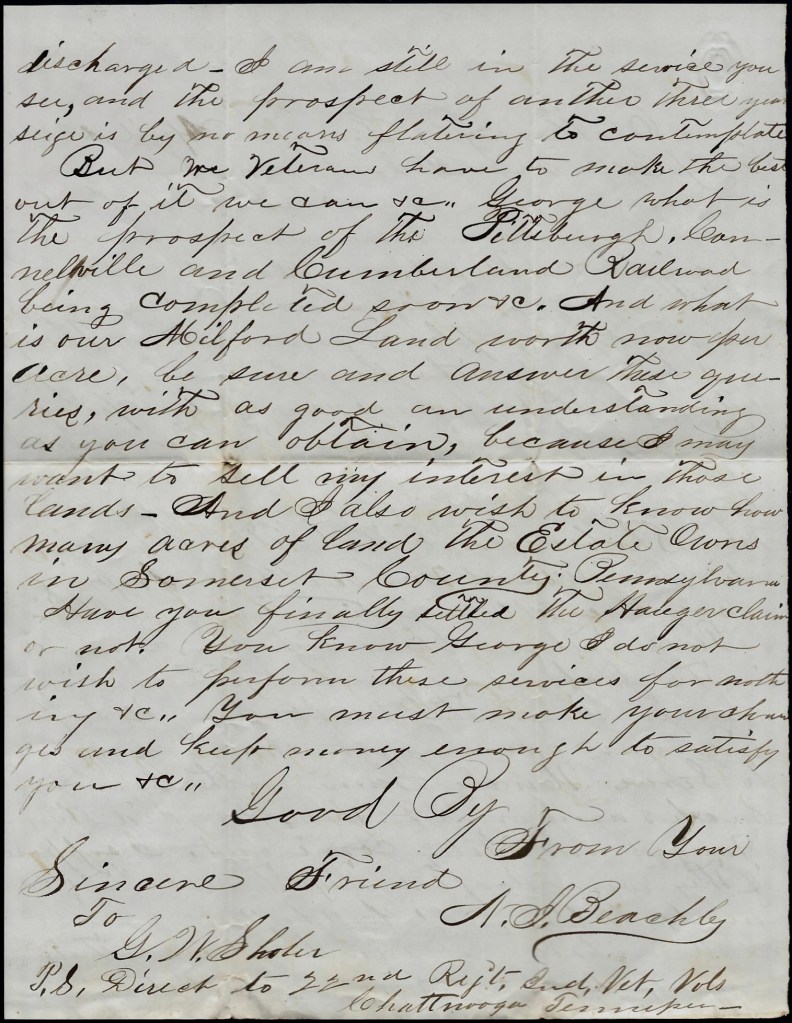 discharged - I am still in the service you
see, and the prospect of anther three year
seige is by no means flatering to contemplate
But we Veterans have to make the best
out of it we can &c,, George what is
the prospect of the Pittsburgh, Con-
nelville and Cumberland Railroad
being completed soon &c. And what
is our Milford Land worth now per
acre, be sure and answer these que-
ries, with as good an understanding
as you can obtain, because I may
want to sell my interest in those
lands - And I also wish to know how
many acres of land the Estate Owns
in Somerset County. Pennsylvania
Have you finally settled the Haeger claim
or not. You know George I do not
wish to perform these services for noth
ing &c,, You must make your char
ges and keep money enough to satisfy
you &c,,
Good By
From Your
Sincere Friend
To
A. J. Beachley
G. W.
P.S, Direct to 22nd Regt, Ind, Vet, Vols
Chattnooga Tennessee -